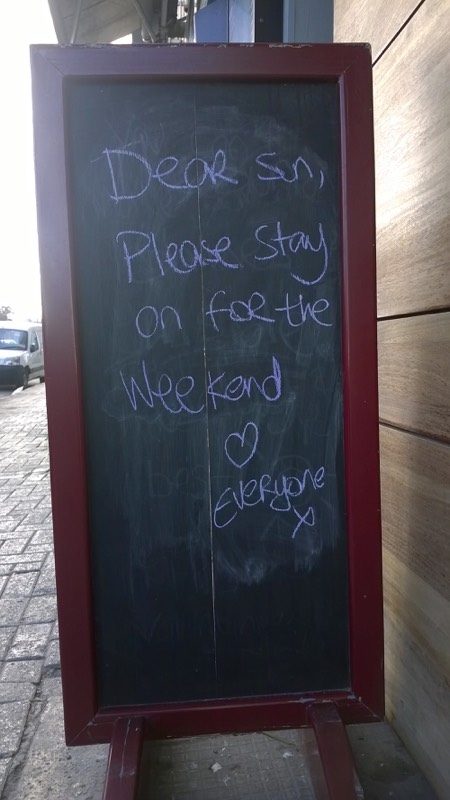 Dear Sun,
Please stay
on for the
Weekend
♡
Everyone
x